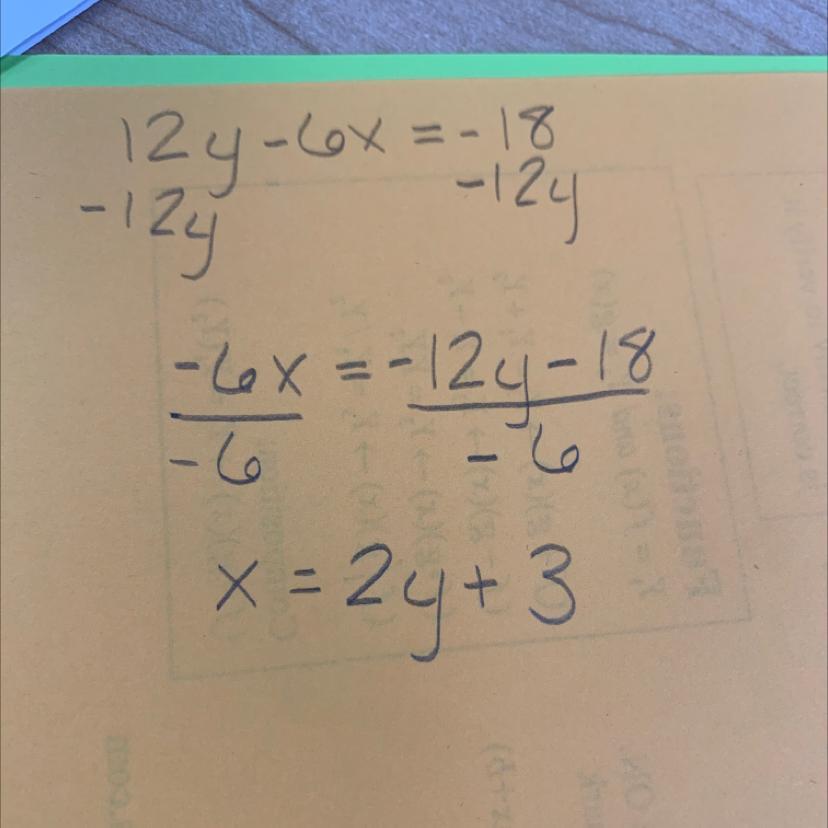 12y - 6x = -18
-12y -12y
-6x = -12y - 18
-6 -6
x = 2y + 3